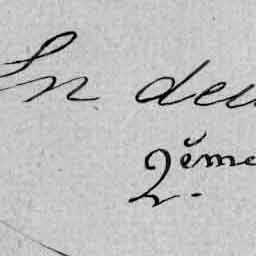 En deu
2ème